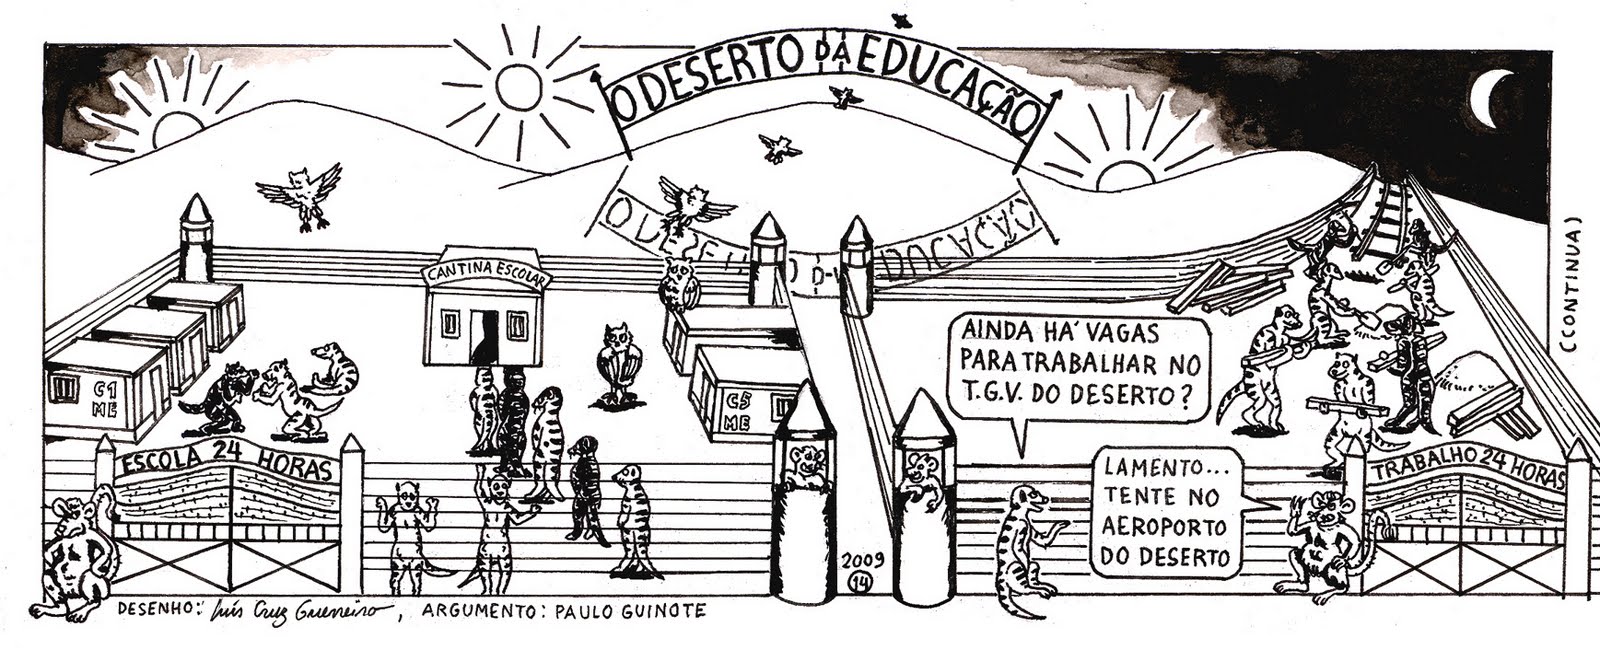 O DESERTO DA EDUCAÇÃO
CANTINA ESCOLAR
C1
ME
C5
ME
AINDA HÁ VAGAS
PARA TRABALHAR NO
T.G.V. DO DESERTO?
LAMENTO...
TENTE NO
AEROPORTO
DO DESERTO
ESCOLA 24 HORAS
TRABALHO 24 HORAS
2009
14
(CONTINUA)
DESENHO: Luís Cruz Guerreiro, ARGUMENTO: PAULO GUINOTE